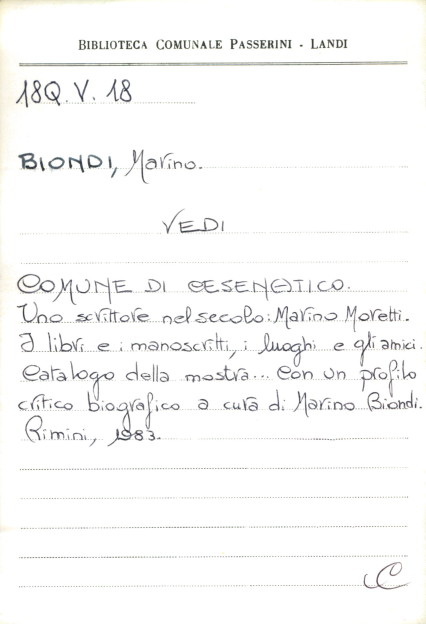 BIBLIOTECA COMUNALE PASSERINI - LANDI
18Q.V. 18
BIONDI, Marino.
VEDI
COMUNE DI CESENATICO.
Uno scrittore nel secolo: Marino Moretti.
I libri e i manoscritti, i luoghi e gli amici.
Catalogo della mostra... con un profilo
critico biografico a cura di Marino Biondi.
Rimini, 1983.
C